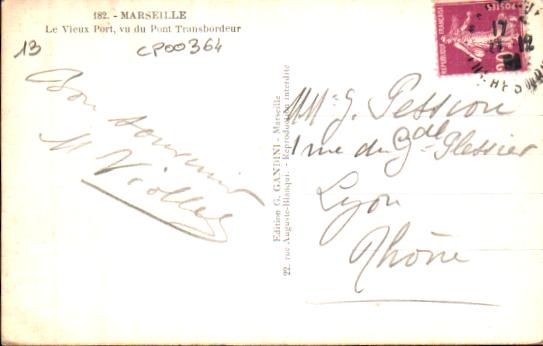 182. - MARSEILLE
Le Vieux Port, vu du Pont Transbordeur
13
CP00364
Bon souvenir
M Viollet
Edition G. GANDINI - Marseille
22, rue Auguste-Blanqui. - Reproduction interdite
REPUBLIQUE FRANÇAISE
POSTES
20c
17
12
Mme G. Pession
1 rue du Gal Plessier
Lyon
Rhône